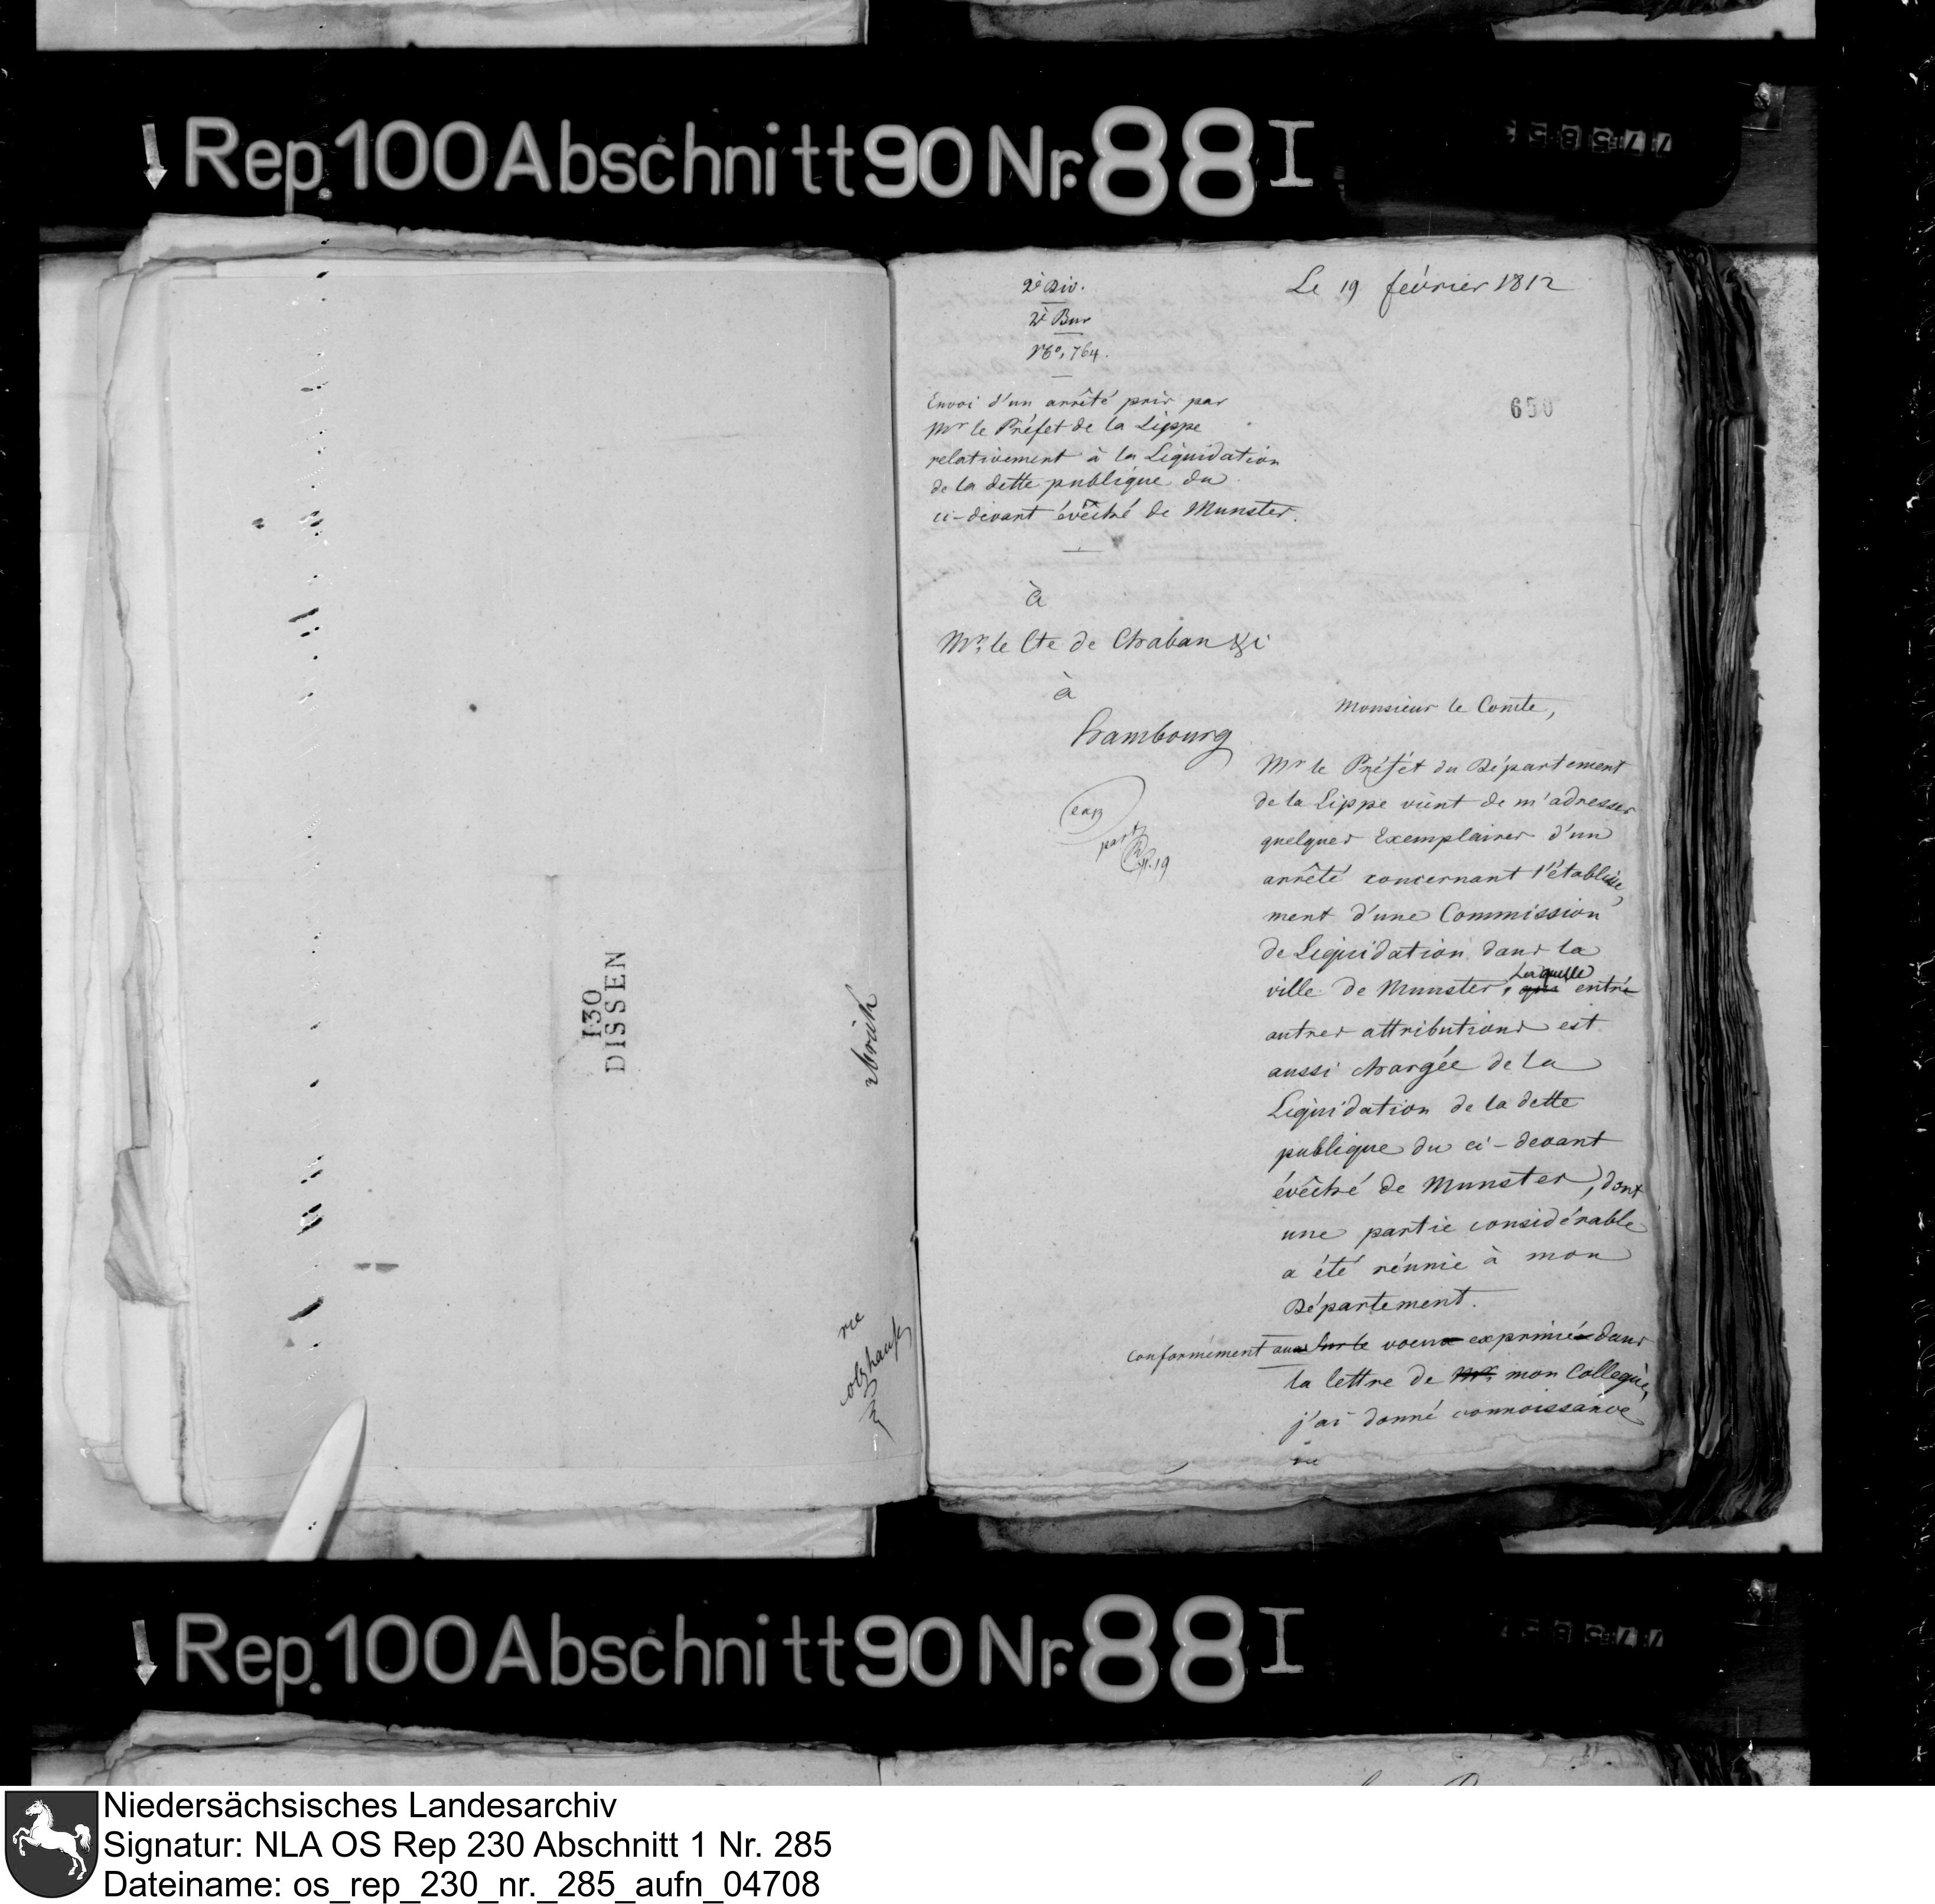 Rep. 100 Abschnitt 90 Nr. 88 I
130
DISSEN
2e Div.
2e Bur
No. 764.
Le 19 février 1812
650
Envoi d'un arrêté pris par
Mr le Préfet de la Lippe
relativement à la Liquidation
de la dette publique du
ci-devant évêché de Munster.
à
Mr. le Cte de Chaban
à
hambourg
Monsieur le Comte,
Mr le Préfet du Département
de la Lippe vient de m'adresser
quelques Exemplaires d'un
arrêté concernant l'établisse,
ment d'une Commission
de Liquidation dans la
ville de Munster, que laquelle entre
autres attributions est
aussi chargée de la
Liquidation de la dette
publique du ci-devant
évêché de Munster, dont
une partie considérable
a été réunie à mon
Département.
Conformément aux Sur le voeux exprimés dans
la lettre de Mr. mon Collegue,
j'ai donné connoissance
Rep. 100 Abschnitt 90 Nr. 88 I
Niedersächsisches Landesarchiv
Signatur: NLA OS Rep 230 Abschnitt 1 Nr. 285
Dateiname: os_rep_230_nr._285_aufn_04708